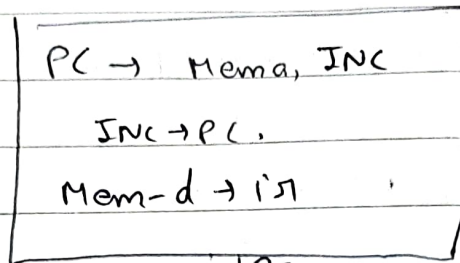 PC → Mema, INC
INC → PC.
Mem-d → ir